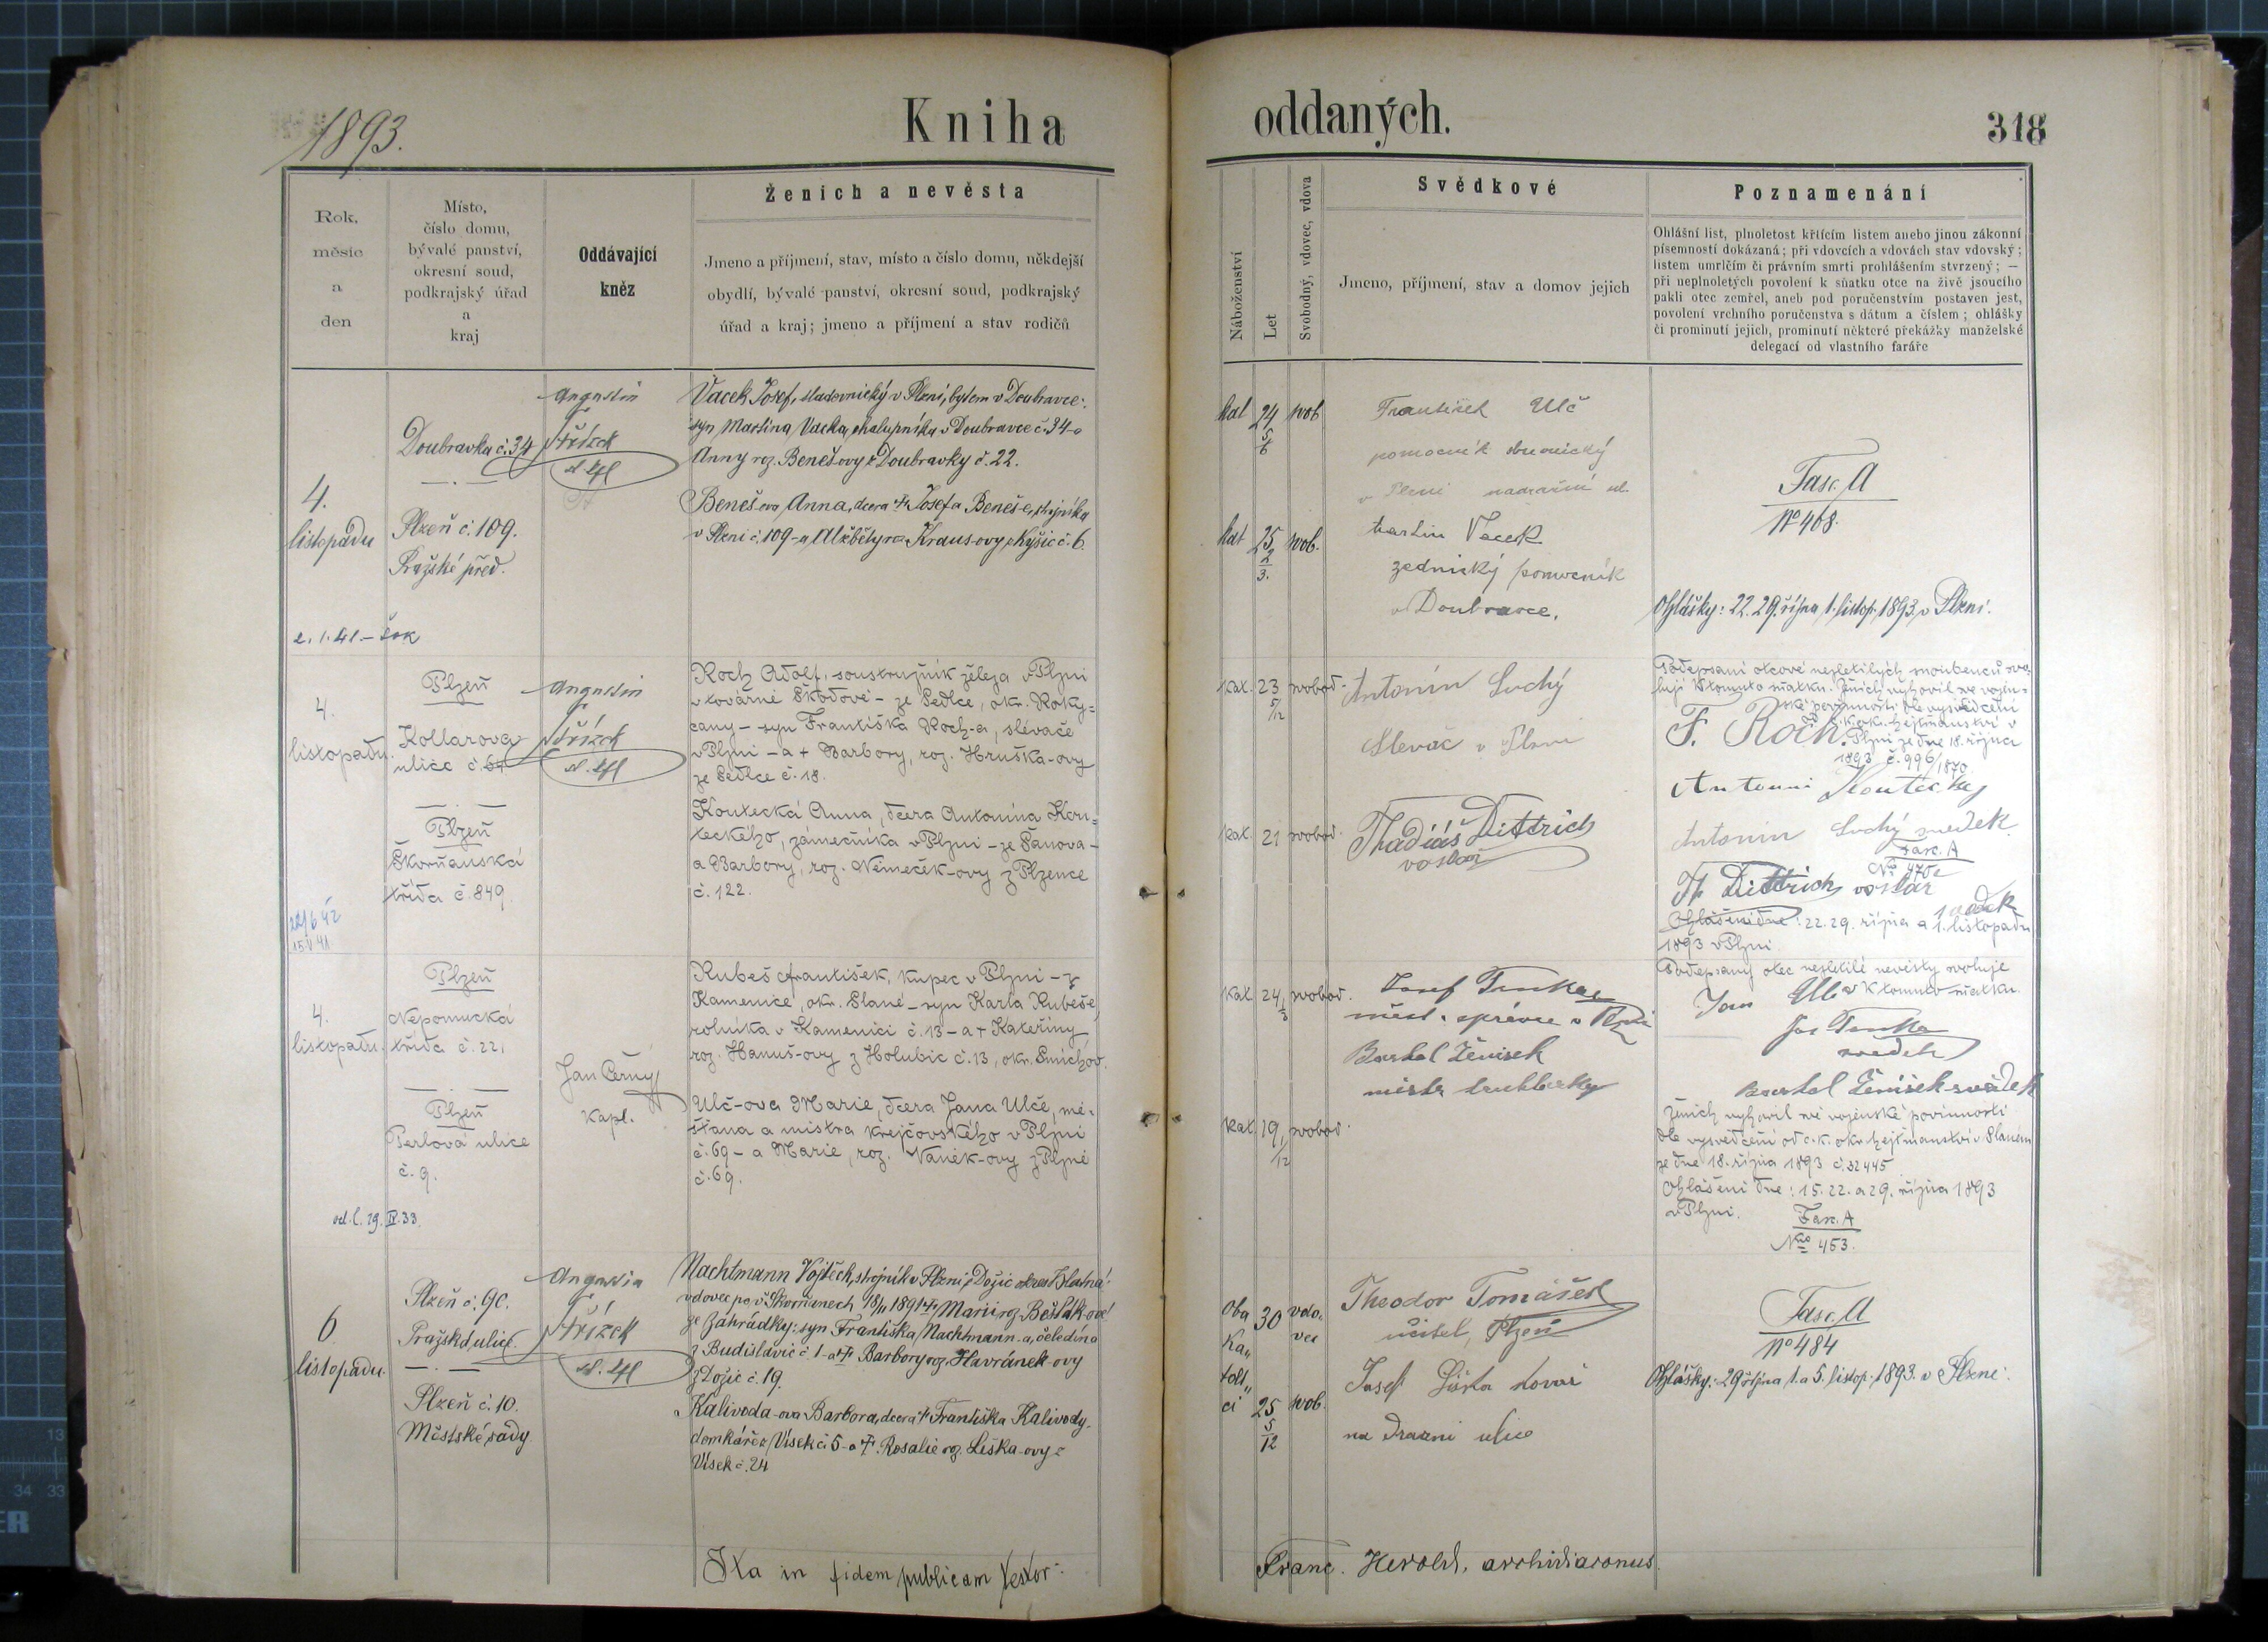 1893.
Kniha
oddaných.
318
Rok,
měsíc
a
den
Místo,
číslo domu,
bývalé panství,
okresní soud,
podkrajský úřad
a
kraj
Oddávající
kněz
Ženich a nevěsta
Jmeno a příjmení, stav, místo a číslo domu, někdejší
obydlí, bývalé panství, okresní soud, podkrajský
úřad a kraj; jmeno a příjmení a stav rodičů
Náboženství
Let
Svobodný, vdovec, vdova
Svědkové
Jmeno, příjmení, stav a domov jejich
Poznamenání
Ohlášní list, plnoletost křticím listem anebo jinou zákonní
písemností dokázaná; při vdovcích a vdovách stav vdovský;
listem umrlčím či právním smrti prohlášením stvrzený; —
při neplnoletých povolení k sňatku otce na živě jsoucího
pakli otec zemřel, aneb pod poručenstvím postaven jest,
povolení vrchního poručenstva s dátum a číslem; ohlášky
či prominutí jejich, prominutí některé překážky manželské
delegací od vlastního faráře
4.
listopadu
Doubravka č. 34
Plzeň č. 109.
Pražské před.
Augustin
Střízek
Vacek Josef, sladovnický v Plzni, bytem v Doubravce:
syn Martina Vacka, chalupníka v Doubravce č. 34 a
Anny roz. Beneš-ovy z Doubravky č. 22.
Beneš-ova Anna, dcera † Josefa Beneš-e, strojníka
v Plzni č. 109 - a Alžběty roz. Kraus-ovy z Kyšic č. 6.
kat 24 5/6 svob
kat 25 2/3. svob.
František Ulč
pomocník
v Plzni nádražní ul.
Martin Vacek
zednický pomocník
v Doubravce.
Fasc. A
No 468.
Ohlášky: 22. 29. října, 1. listop. 1893 v Plzni.
4.
listopadu.
Plzeň
Kollarova
ulice č. 64
Plzeň
Škorňanská
třída č. 849
Augustin
Střízek
Koch Adolf, soustružník železa v Plzni
v továrně Škodově - ze Sedlce, okr. Roky=
cany - syn Františka Koch-a, slévače
v Plzni - a † Barbory, roz. Hruška-ovy
ze Sedlce č. 18.
Koutecká Anna, dcera Antonína Kou=
teckého, zámečníka v Plzni - ze Šanova -
a Barbory, roz. Němeček-ovy z Plzence
č. 122.
kat. 23 5/12 svobod.
kat. 21 svobod.
Antonín Suchý
Slevač v Plzni
Thadiáš Dittrich
voslař
Podepsaní otcové nezletilých snoubenců svo=
lují k tomuto sňatku. Ženich vyhověl své vojen=
ské povinnosti dle vysvědčení
od c. k. okr. hejtmanství v
F. Koch. Plzni ze dne 18. října
1893 č. 996/1870
Antonin Koutecký
Antonin Suchý svedek
Fasc. A
T. Dittrich voslař
svědek
Ohlášeni dne: 22. 29. října a 1. listopadu
1893 v Plzni.
4.
listopadu.
Plzeň
Nepomucká
třída č. 22,
Plzeň
Perlová ulice
č. 9.
od. l. 29. IV. 33.
Jan Černý
kapl.
Kubeš František, kupec v Plzni - z
Kamenice, okr. Slané - syn Karla Kubeše,
rolníka v Kamenici č. 13 - a † Kateřiny
roz. Hanuš-ovy z Holubic č. 13, okr. Smíchov.
Ulč-ova Marie, dcera Jana Ulče, mě=
šťana a mistra krejčovského v Plzni
č. 69 - a Marie, roz. Vaněk-ovy z Plzně
č. 69.
kat 24 svobod.
kat. 19 1/12 svobod.
Josef
měst. správce v Plzni
Bartol Ženisek
mistr truhlařsky
Podepsany otec nezletilé nevěsty svoluje
k tomuto sňatku.
Jan Ulč
svědek
Bartol Ženišek svědek
Ženich vyhověl své vojenské povinnosti
dle vysvědčení od c. k. okr. hejtmanství v Slaném
ze dne 18. října 1893 č. 32445
Ohlášeni dne: 15. 22. a 29. října 1893
v Plzni.
Fasc. A
Nro 453.
6
listopadu.
Plzeň č. 90.
Pražská ulice.
Plzeň č. 10.
Městské sady
Augustin
Střízek
Nachtmann Vojtěch, strojník v Plzni z Dožic okres Blatná:
vdovec po v Skvrňanech 18/11 1891 † Marii roz. Bešťák-ové
ze Zahrádky: syn Františka Nachtmann-a, čeledína
z Budislavic č. 1 - a † Barbory roz. Havránek-ovy
z Dožic č. 19.
Kalivoda-ova Barbora, dcera † Františka Kalivody
domkáře z Vísek č. 5 - a †. Rosalie roz. Liška-ovy z
Vísek č. 24
oba
ka„
tolí„
ci
30 vdo„
vec
25 5/12 svob.
Theodor Tomášek
učitel, Plzeň
Josef Liška kovář
na Drazni ulice
Fasc. A
No 484
Ohlášky: 29 října, 1. a 5. listop. 1893. v Plzni.
Ita in fidem publicam testor:
Franc. Herold, archidiaconus.